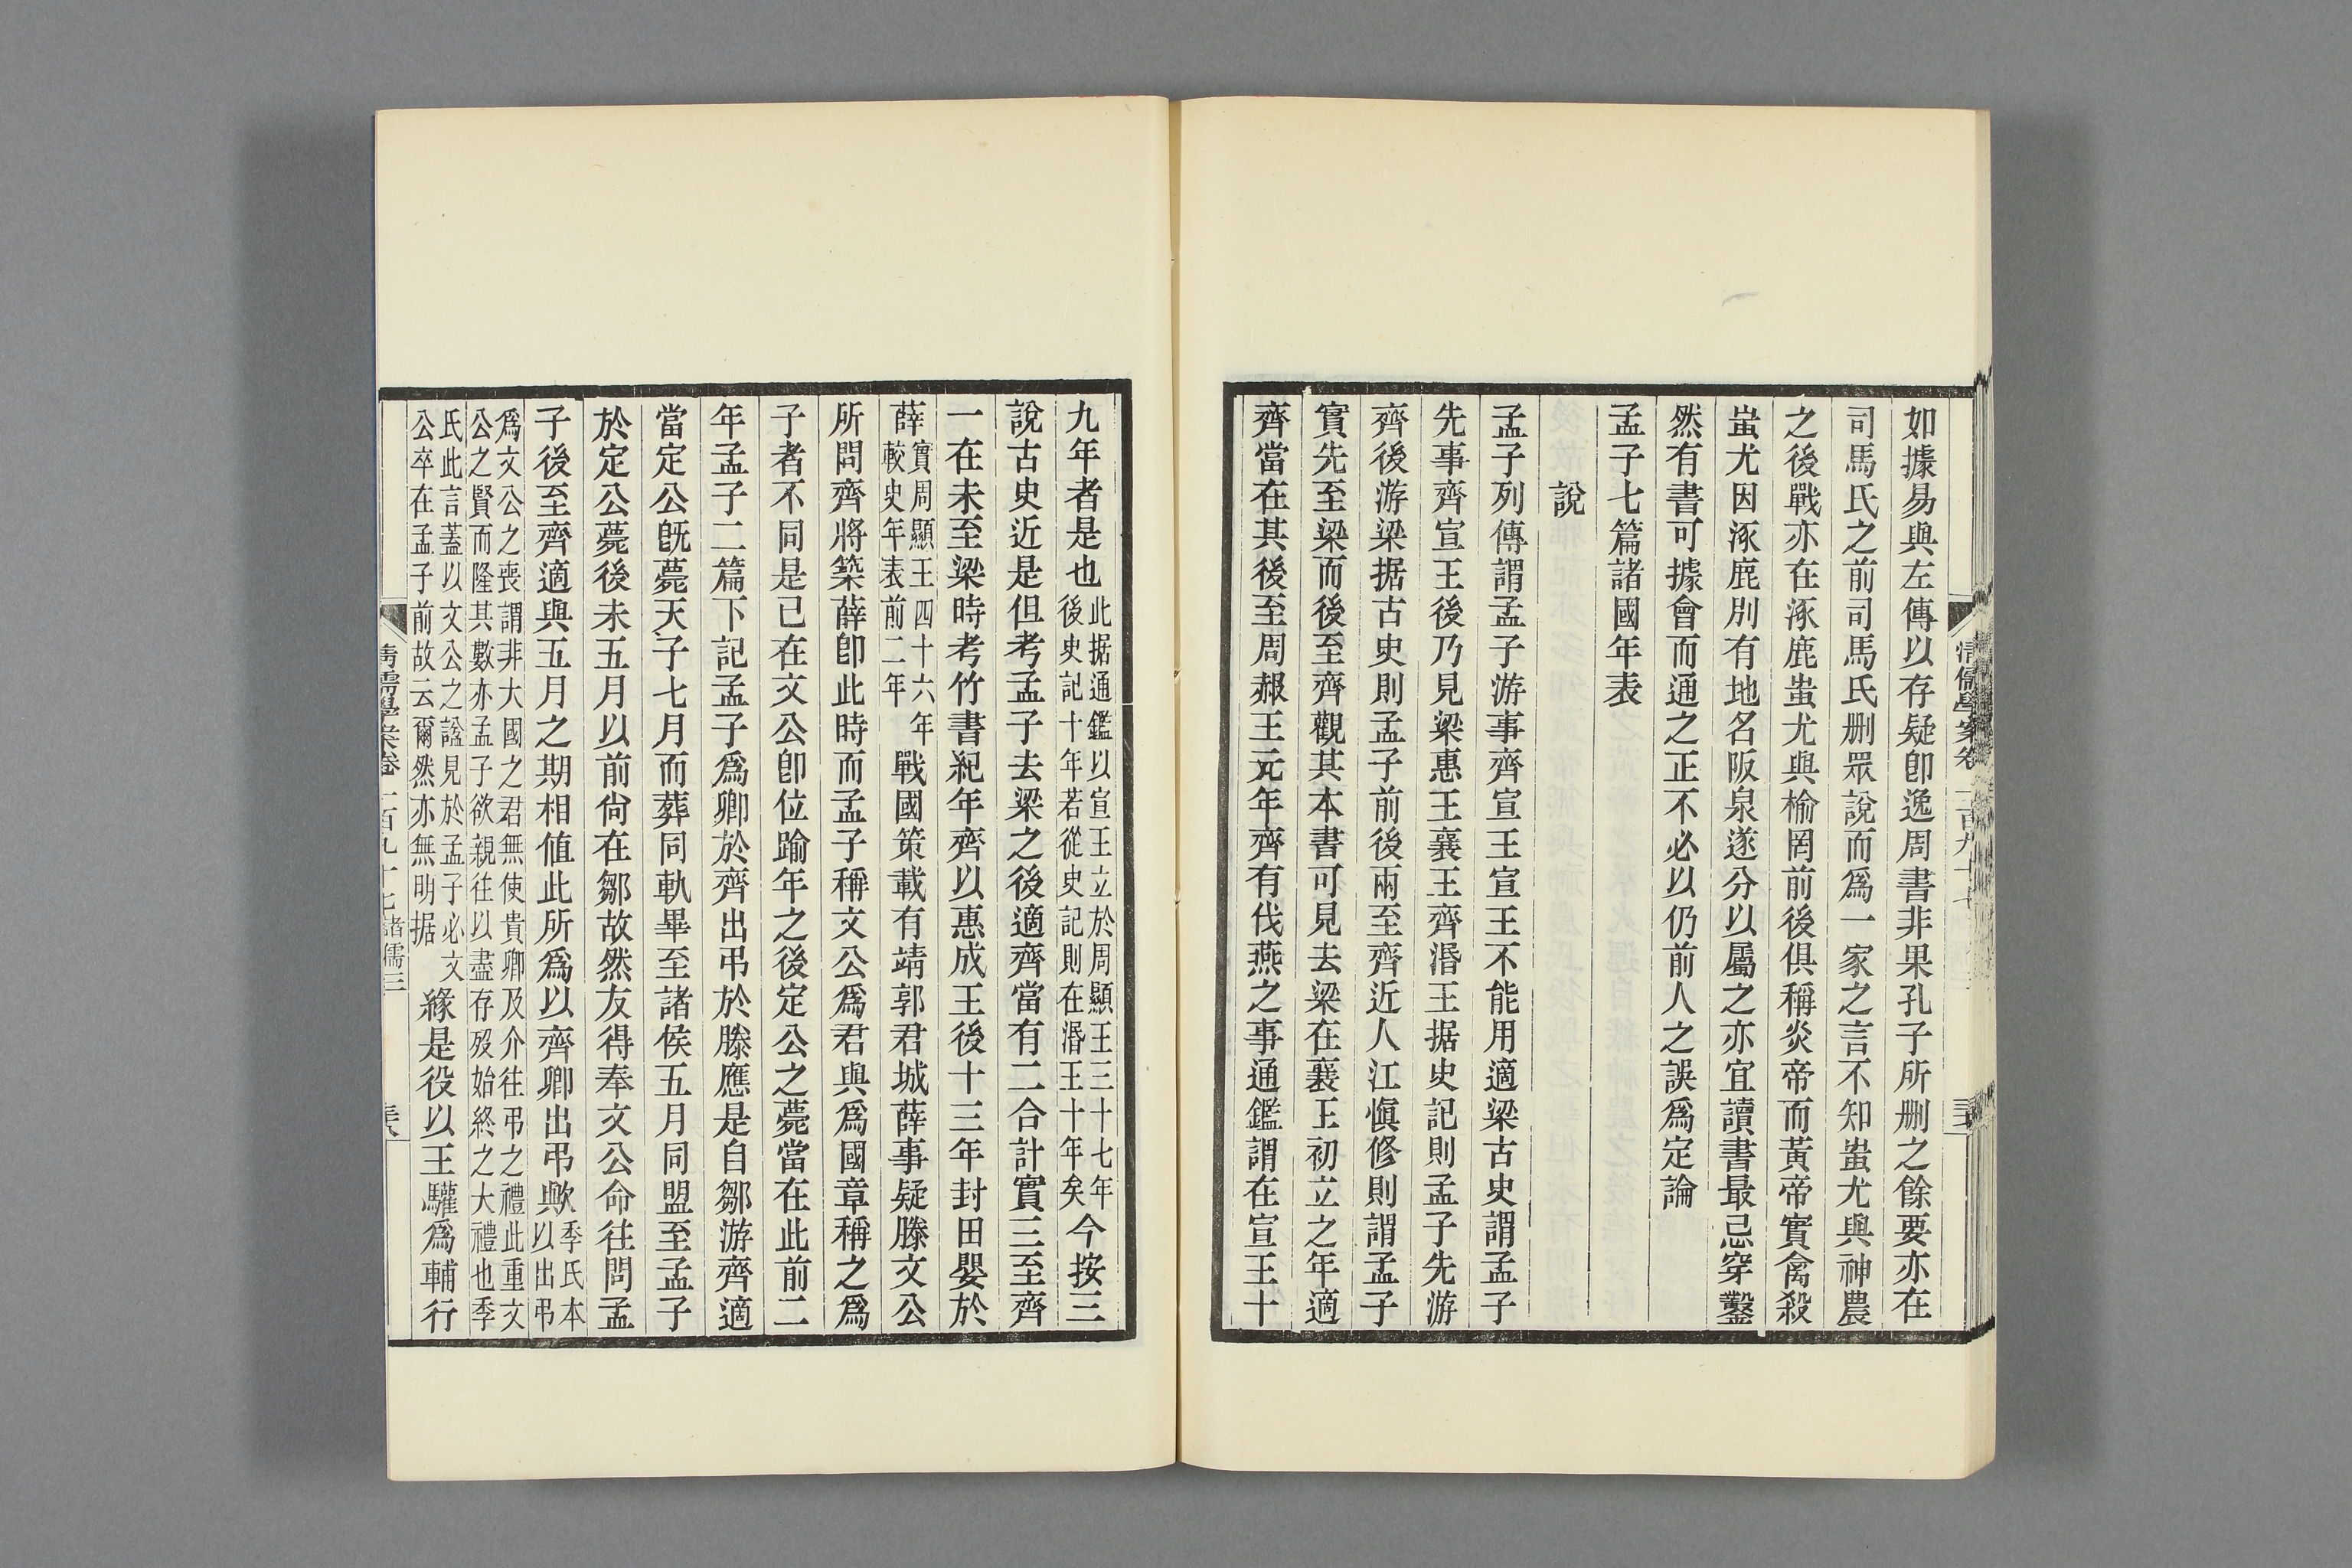 如據易與左傳以存疑卽逸周書非果孔子所刪之餘要亦在
司馬氏之前司馬氏刪眾說而爲一家之言不知蚩尤與神農
之後戰亦在涿鹿蚩尤與榆罔前後俱稱炎帝而黃帝實禽殺
蚩尤因涿鹿別有地名阪泉遂分以屬之亦宜讀書最忌穿鑿
然有書可據會而通之正不必以仍前人之誤爲定論
孟子七篇諸國年表
說
孟子列傳謂孟子游事齊宣王宣王不能用適梁古史謂孟子
先事齊宣王後乃見梁惠王襄王齊湣王据史記則孟子先游
齊後游梁据古史則孟子前後兩至齊近人江愼修則謂孟子
實先至梁而後至齊觀其本書可見去梁在襄王初立之年適
齊當在其後至周赧王元年齊有伐燕之事通鑑謂在宣王十
九年者是也此据通鑑以宣王立於周顯王三十七年
後史記十年若從史記則在湣王十年矣今按三
說古史近是但考孟子去梁之後適齊當有二合計實三至齊
一在未至梁時考竹書紀年齊以惠成王後十三年封田嬰於
薛實周顯王四十六年
較史年表前二年戰國策載有靖郭君城薛事疑滕文公
所問齊將築薛卽此時而孟子稱文公爲君與爲國章稱之爲
子者不同是已在文公卽位踰年之後定公之薨當在此前二
年孟子二篇下記孟子爲卿於齊出弔於滕應是自鄒游齊適
當定公旣薨天子七月而葬同軌畢至諸侯五月同盟至孟子
於定公薨後未五月以前尙在鄒故然友得奉文公命往問孟
子後至齊適與五月之期相值此所爲以齊卿出弔歟季氏本
以出弔
爲文公之喪謂非大國之君無使貴卿及介往弔之禮此重文
公之賢而隆其數亦孟子欲親往以盡存歿始終之大禮也季
氏此言蓋以文公之諡見於孟子必文
公卒在孟子前故云爾然亦無明据緣是役以王驩爲輔行
清儒學案卷二百九十七 諸儒三